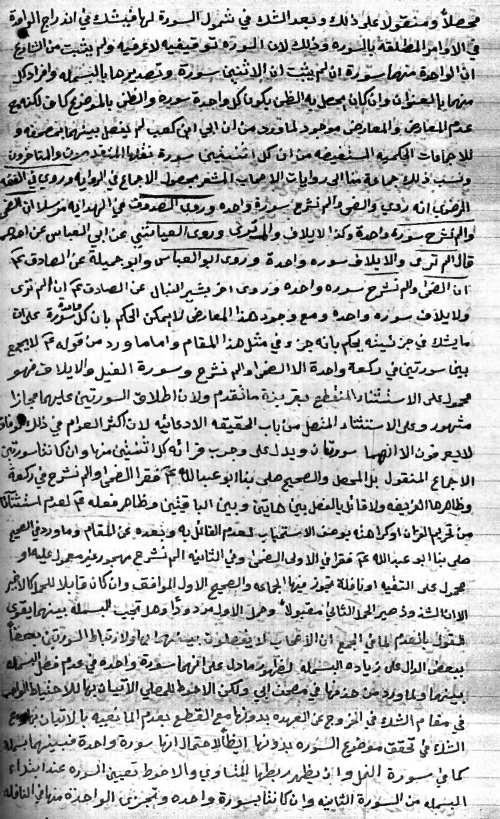 محصلاً ومنقولاً على ذلك وبعد الشك في شمول السورة لها فيشك في اندراج الواحدة
في الاوامر المطلقة بالسورة وذلك لان السورة توقيفية لا عرفية ولم يثبت من الشارع
ان الواحدة منهما سورة ان لم يثبت ان الاثنتين سورة وتصديرها بالبسملة وافراد كل
منهما بالعنوان وان كان يحصل به الظن بكون كل واحدة سورة والظن بالموضوع كاف لكنه مع
عدم المعارض والمعارض موجود لما ورد من ان ابي ابن كعب لم يفصل بينهما بمصحفه و
للاجماعات المحكية المستفيضة من ان كل اثنتين سورة نقلها المتقدمون والمتاخرون
ونسب ذلك جماعة منا الى روايات الاصحاب المشعر بحصول الاجماع في الرواية وروي في الفقه
الرضوي انه روي والضحى والم نشرح سورة واحدة وروى الصدوق في الهداية مرسلا ان الضحى
والم نشرح سورة واحدة وكذا لايلاف والم ترى وروى العياشي عن ابي العباس عن احدهما
قال الم ترى ولايلاف سورة واحدة وروى ابو العباس وابو جميلة عن الصادق ع
ان الضحى والم نشرح سورة واحدة وروى اخر بشير النبال عن الصادق ع ان الم ترى
ولايلاف سورة واحدة ومع وجود هذا المعارض لا يمكن الحكم بان كل واحدة سورة على ان
ما يشك في جزئيته يحكم بانه جزء في مثل هذا المقام واما ما ورد من قوله ع لا يجمع
بين سورتين في ركعة واحدة الا الضحى والم نشرح وسورة الفيل والايلاف فهو
محمول على الاستثناء المنقطع بقرينة ما تقدم ولان اطلاق السورتين عليهما مجازا
مشهور وعلى الاستثناء المتصل من باب الحقيقة الادعائية لان اكثر العوام في ذلك الوقت
لا يعرفون الا انهما سورتان ويدل على وجوب قرائة كل اثنتين منها وان كانتا سورتين
الاجماع المنقول بل المحصل والصحيح صلى بنا ابو عبد الله ع فقرا الضحى والم نشرح في ركعة
وظاهرها الفريضة ولا قائل بالفصل بين هاتين وبين الباقيتين وظاهر فعله ع لعدم استثنائه
من تحريم القران او كراهته بوصف الاستحباب لعدم القائل به وبعده عن المقام وما ورد في الصحيح
صلى بنا ابو عبد الله ع فقرا في الاولى الضحى وفي الثانية الم نشرح مهجور غير معمول عليه او
محمول على التقية او نافلة تجوز فيها الجماعة والصحيح الاول الموافق وان كان قابلا للحمل الاخير
الا ان الشهرة تصير الحمل الثاني مقبولا وحمل الاول مردودا وهل تجب البسملة بينهما يقوى
القول بالعدم لما في المجمع ان الاصحاب لا يفصلون بينهما بها ولارتباط السورتين بعضها
ببعض الدال على زيادة البسملة لظهور ما دل على انهما سورة واحدة في عدم فصل البسملة
بينهما ولما ورد من حذفها في مصحف ابي ولكن الاحوط للمصلي الاتيان بها للاحتياط الواجب
في مقام الشك في الخروج عن العهدة بدونها مع القطع بعدم المانعية بالاتيان بها ومع
الشك في تحقق موضوع السورة بدونها ايضاً لاحتمال انها سورة واحدة فبينهما بسملة
كما في سورة النمل واذ يظهر ربطها المتناوي والاحوط تعيين السورة عند ابتداء
البسملة من السورة الثانية وان كانتا سورة واحدة وتجزى الواحدة منها في النافلة